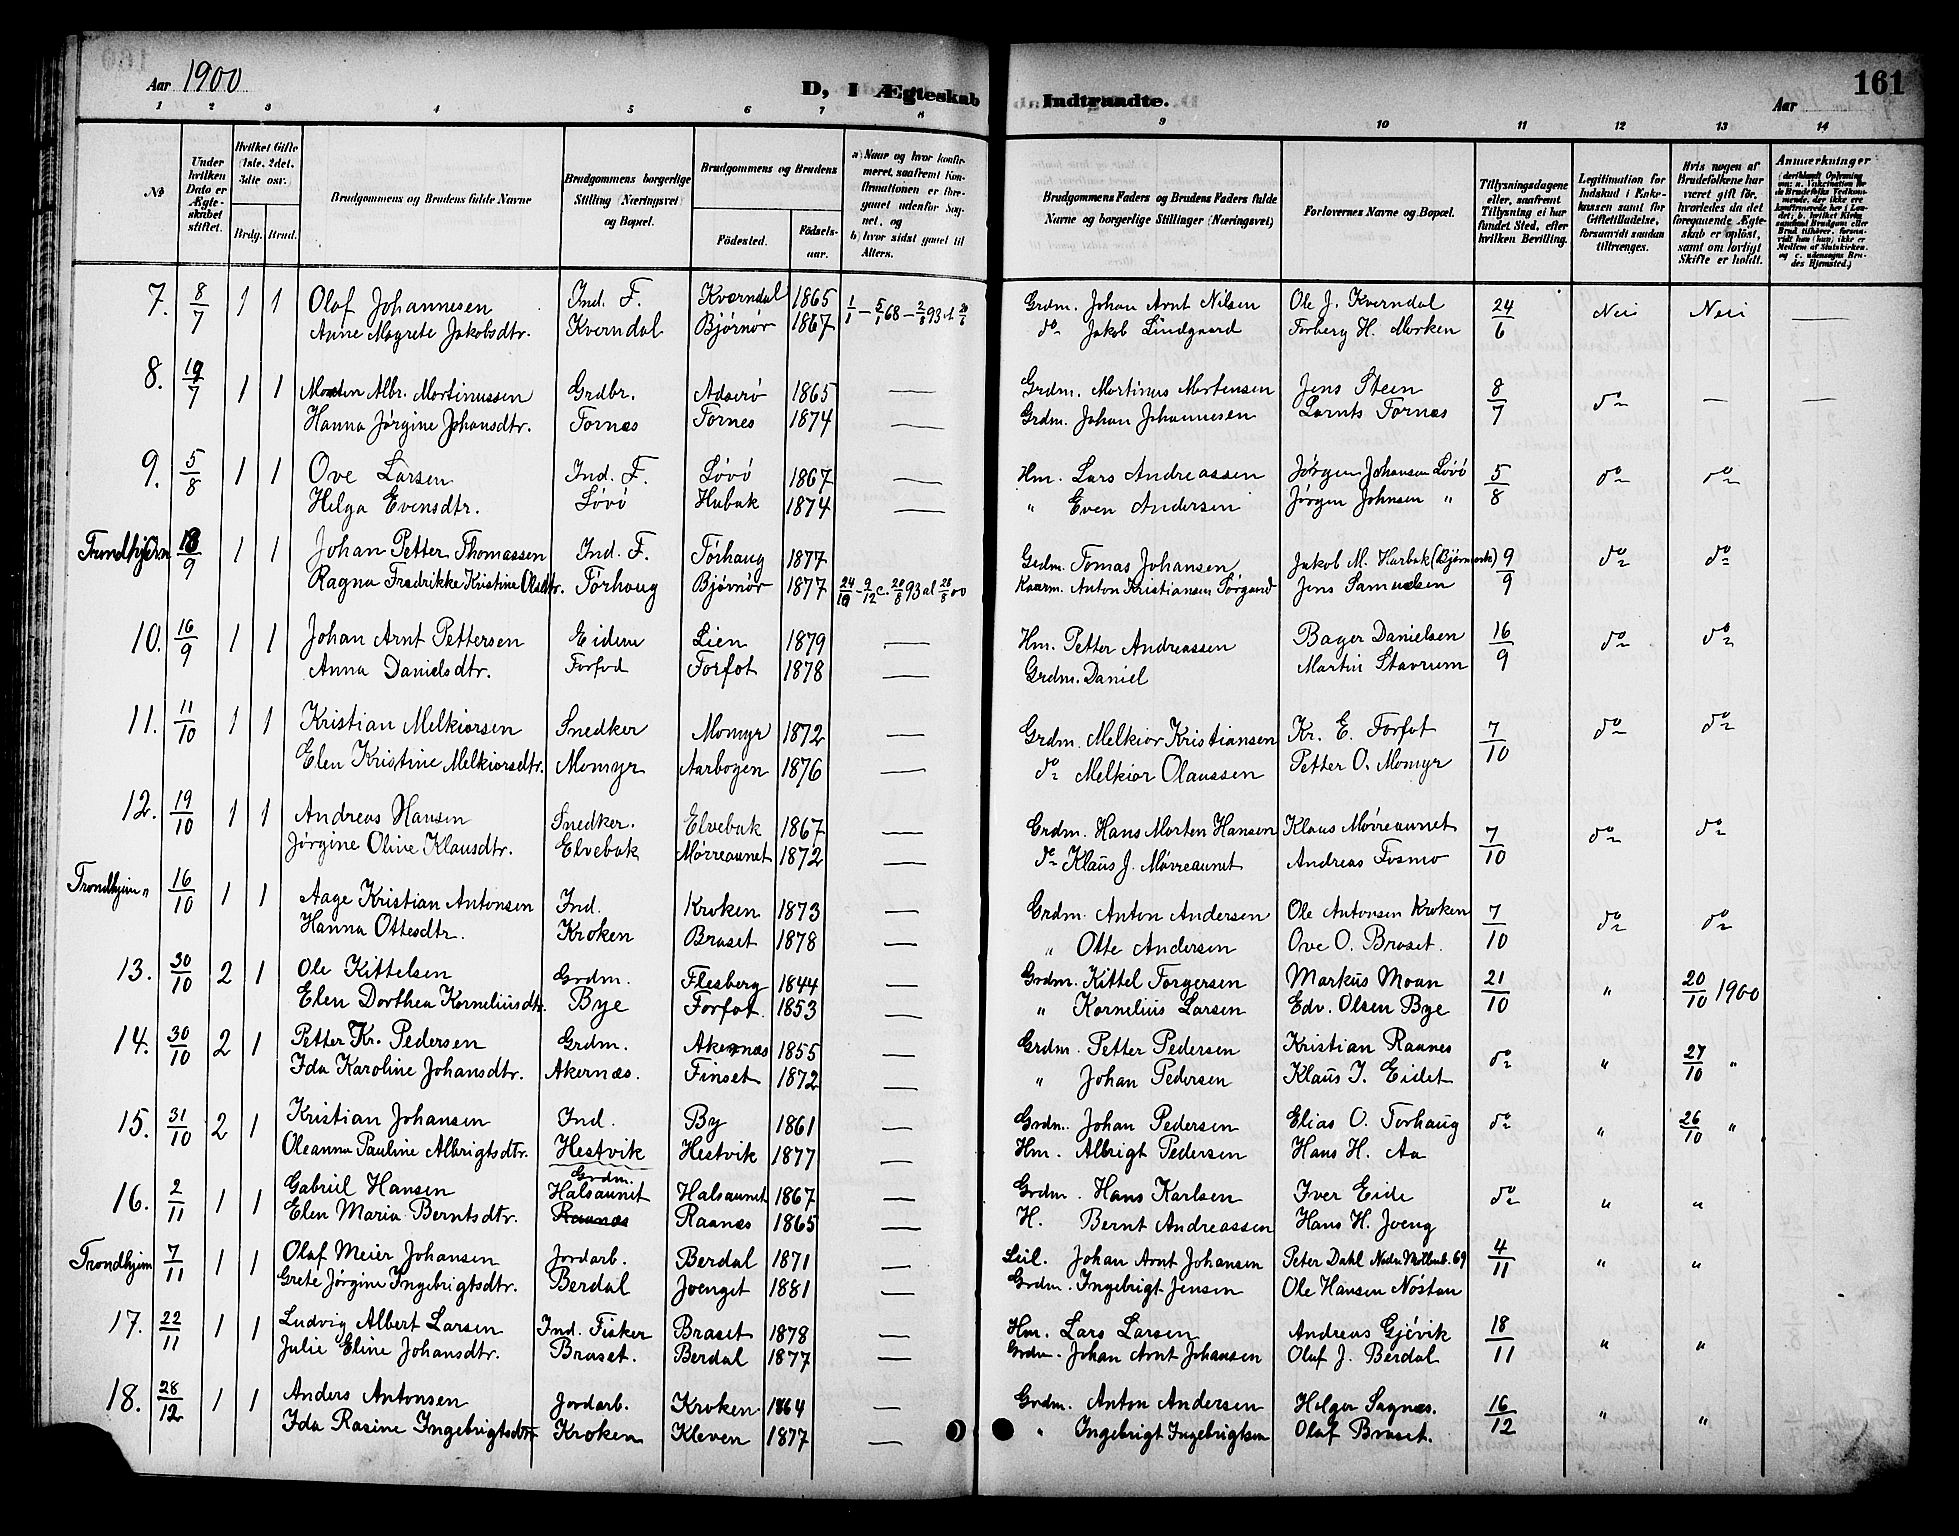 Aar 1900
D, I Ægteskab Indtraadte.
161
Aar
1 2 3 4 5 6 7 8 9 10 11 12 13 14
№ | Under hvilken Dato er Ægteskabet stiftet. | Hvilket Gifte (1ste, 2det, 3die osv. Brdg. Brud. | Brudgommens og Brudens fulde Navne | Brudgommens borgerlige Stilling (Næringsvei) og Bopæl. | Brudgommens og Brudens Fødested. Fødselsaar. | a) Naar og hvor konfirmeret, saafremt Konfirmationen er foregaaet udenfor Sognet, og b) hvor sidst gaaet til Alters. | Brudgommens Faders og Brudens Faders fulde Navne og borgerlige Stillinger (Næringsvei) | Forlovernes Navne og Bopæl. | Tillysningsdagene eller, saafremt Tillysning ei har fundet Sted, efter hvilken Bevilling. | Legitimation for Indskud i Enkekassen samt for Giftetilladelse, forsaavidt saadan tiltrænges. | Hvis nogen af Brudefolkene har været gift før, hvorledes da det foregaaende Ægteskab er opløst, samt om lovligt Skifte er holdt. | Anmærkninger
7. 8/7 1 1 Olaf Johannesen Ind. F. Kverndal 1865 1/1 – 5/1 68 – 2/8 93 Grdm. Johan Arnt Nilsen Ole J. Kverndal 24/6 Nei Nei —
Anne Magrete Jakobsdtr. Kverndal Bjørnør 1867 do Jakob Lindgaard Torberg H. Morken
8. 19/7 1 1 Morten Albr. Martinussen Grdbr. Adserø 1865 — Grdm. Martinus Mortensen Jens Steen 8/7 do — —
Hanna Jørgine Johansdtr. Tornes Tornes 1874 — Grdm. Johan Johannesen Larnts Tornæs
9. 5/8 1 1 Ove Larsen Ind. F. Løvö 1867 — Hm. Lars Andreassen Jørgen Johansen Løvö 5/8 do do
Helga Evensdtr. Løvö Hubak 1874 — " Even Andersen Jørgen Johnsen "
Trondhjem 18/9 1 1 Johan Petter Thomassen Ind. F. Tørhaug 1877 Grdm. Tomas Johansen Jakob M. Harbak 9/9 do do
Ragna Fredrikke Kristine Olsdtr. Tørhaug Bjørnør 1877 Kaarm. Anton Kristiansen Sørgaard Jens Samuelsen
10. 16/9 1 1 Johan Arnt Pettersen Eidem Lien 1879 — Hm. Petter Andreassen Bager Danielsen 16/9 do do
Anna Danielsdtr. Forfod Forfot 1878 — Grdm. Daniel Martin Stavrum
11. 11/10 1 1 Kristian Melkiorsen Snedker Momyr 1872 — Grdm. Melkior Kristiansen Kr. E. Forfot 7/10 do do
Elen Kristine Melkiorsdtr. Momyr Aarbogen 1876 — do Melkior Olaussen Petter O. Momyr
12. 19/10 1 1 Andreas Hansen Snedker. Elvebak 1867 — Grdm. Hans Morten Hansen Klaus Møvreaunet 7/10 do do
Jørgine Olive Klausdtr. Elvebak Møvreaunet 1872 — do Klaus J. Møvreaunet Andreas Fosmo
Trondhjem " 16/10 1 1 Aage Kristian Antonsen Ind. Kroken 1873 — Grdm. Anton Andersen Ole Antonsen Kroken 7/10 do do
Hanna Ottesdtr. Kroken Braset 1878 — " Otte Andersen Ove O. Braset.
13. 30/10 2 1 Ole Kittelsen Grdm. Flesberg 1844 — Grdm. Kittel Torgersen Markus Moan 21/10 " 20/10 1900
Elen Dorthea Korneliusdtr. Bye Forfot. 1853 — " Kornelius Larsen Edv. Olsen Bye
14. 30/10 2 1 Petter Kr. Pedersen Grdm. Akernæs 1855 — Grdm. Petter Pedersen Kristian Raanes do " 27/10 "
Ida Karoline Johansdtr. Akernæs. Finset 1872 — " Johan Pedersen Klaus J. Eidet
15. 31/10 2 1 Kristian Johansen Ind. By 1861 — Grdm. Johan Pedersen Elias O. Torhaug do " 26/10 "
Oleanna Pauline Albrigtsdtr. Hestvik Hestvik 1877 — Hm. Albrigt Pedersen Hans H. Aa
16. 2/11 1 1 Gabriel Hansen Grdm. Halsaunet Halsaunet 1867 — Grdm. Hans Karlsen Iver Eide do " "
Elen Maria Berntsdtr. Raanæs Raanæs 1865 — H. Bernt Andreassen Hans H. Joeng
Trondhjem 7/11 1 1 Olaf Meier Johansen Jordarb. Berdal 1871 — Leil. Johan Arnt Johansen Peter Dahl Nedre Møllenb. 69 4/11 " "
Grete Jørgine Ingebrigtsdtr. Berdal Joenget 1881 — Grdm. Ingebrigt Jensen Ole Hansen Nöstan
17. 22/11 1 1 Ludvig Albert Larsen Ind. Fisker Braset 1878 — Hm. Lars Larsen Andreas Gjévik 18/11 " "
Julie Eline Johansdtr. Braset. Berdal 1877 — Grdm. Johan Arnt Johansen Olaf J. Berdal
18. 28/12 1 1 Anders Antonsen Jordarb. Kroken 1864 — Grdm. Anton Andersen Helger Sagnæs. 16/12 " "
Ida Rasine Ingebrigtsdtr Kroken Kleven 1877 — " Ingebrigt Ingebrigtsen Olaf Braset.